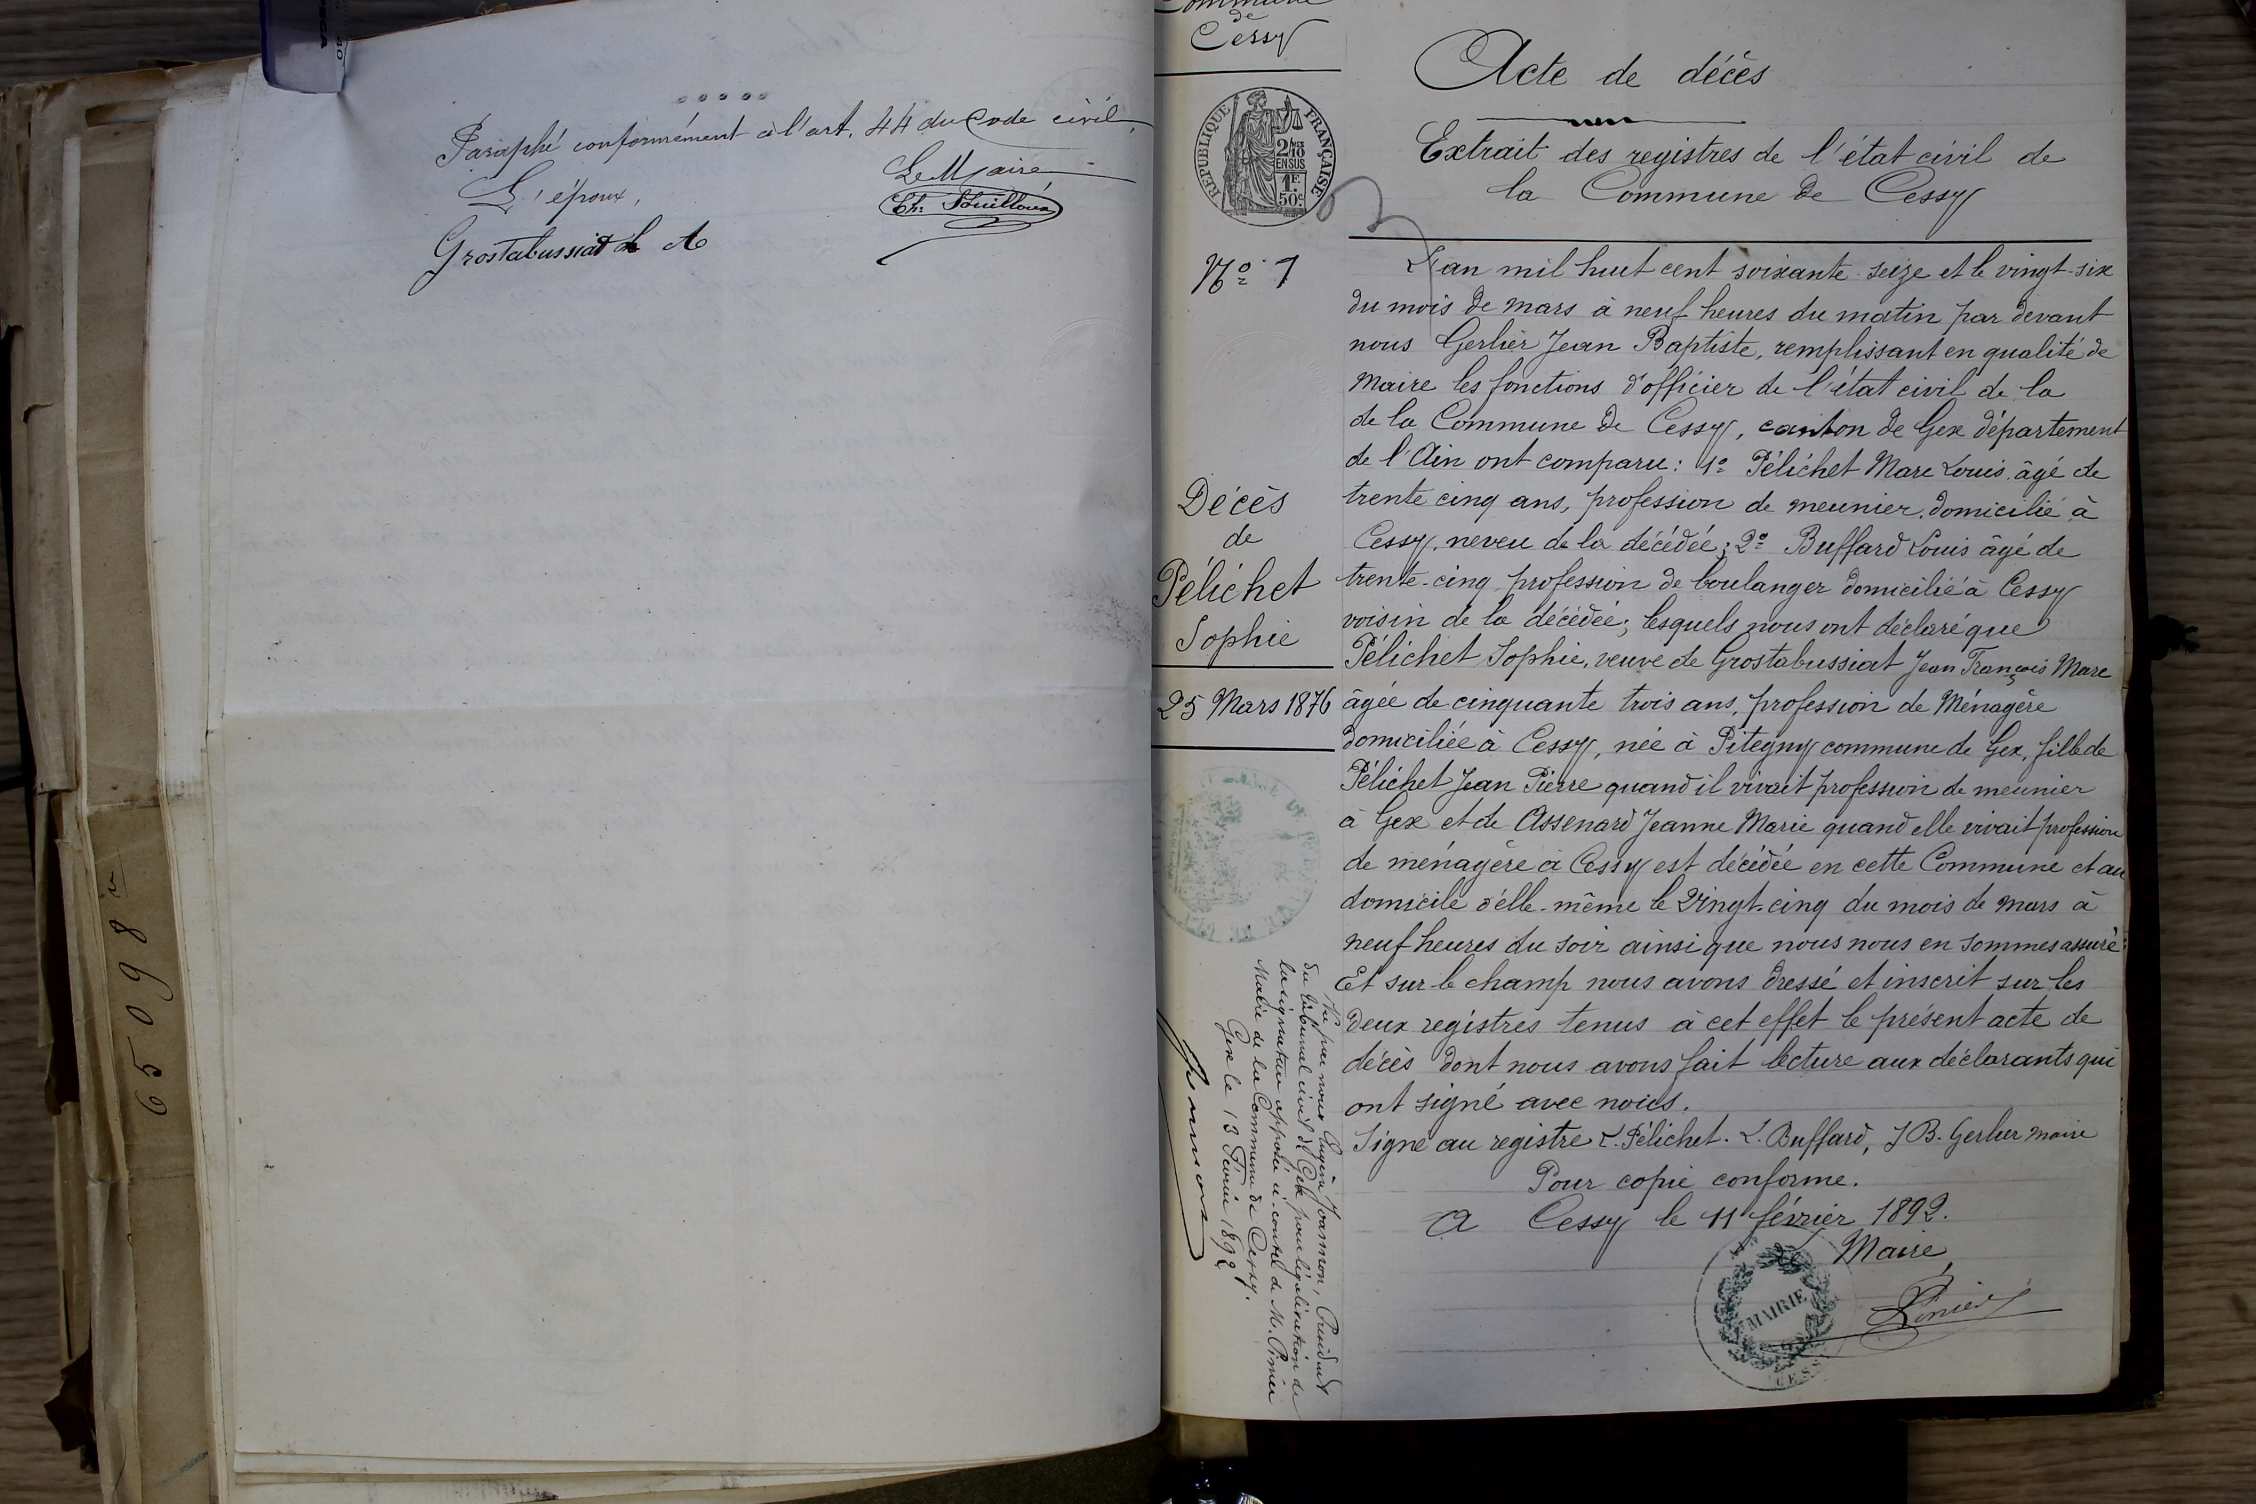 Paraphé conformément à l'art. 44 du Code civil,
L'époux,
Le Maire
Grostabussiat
65098
Commune
de
Cessy
RÉPUBLIQUE FRANÇAISE
2/10
EN SUS
1F
50c
No 7
Décès
de
Pélichet
Sophie
25 Mars 1876
Vu par nous Eugène Joannon, Président
du tribunal civil de Gex pour légalisation de
la signature apposée ci-contre de M. Pinier
Maire de la Commune de Cessy.
Gex le 13 Février 1892
Acte de décès
Extrait des registres de l'état civil de
la Commune de Cessy
L'an mil huit cent soixante-seize et le vingt-six
du mois de mars à neuf heures du matin par devant
nous Gerlier Jean Baptiste, remplissant en qualité de
Maire les fonctions d'officier de l'état civil de la
de la Commune de Cessy, canton de Gex département
de l'Ain ont comparu : 1o Pélichet Marc Louis âgé de
trente cinq ans, profession de meunier, domicilié à
Cessy, neveu de la décédée ; 2o Buffard Louis âgé de
trente-cinq profession de boulanger domicilié à Cessy
voisin de la décédée ; lesquels nous ont déclaré que
Pélichet Sophie, veuve de Grostabussiat Jean François Marc
âgée de cinquante trois ans, profession de Ménagère
domiciliée à Cessy, née à Pitegny commune de Gex, fille de
Pélichet Jean Pierre quand il vivait profession de meunier
à Gex et de Assenard Jeanne Marie quand elle vivait profession
de ménagère à Cessy est décédée en cette Commune et au
domicile d'elle-même le Vingt-cinq du mois de mars à
neuf heures du soir ainsi que nous nous en sommes assuré :
Et sur-le champ nous avons dressé et inscrit sur les
deux registres tenus à cet effet le présent acte de
décès dont nous avons fait lecture aux déclarants qui
ont signé avec nous.
Signé au registre L. Pélichet. L. Buffard, J B. Gerlier maire
Pour copie conforme.
A Cessy le 11 février 1892.
Maire,
MAIRIE
CESSY